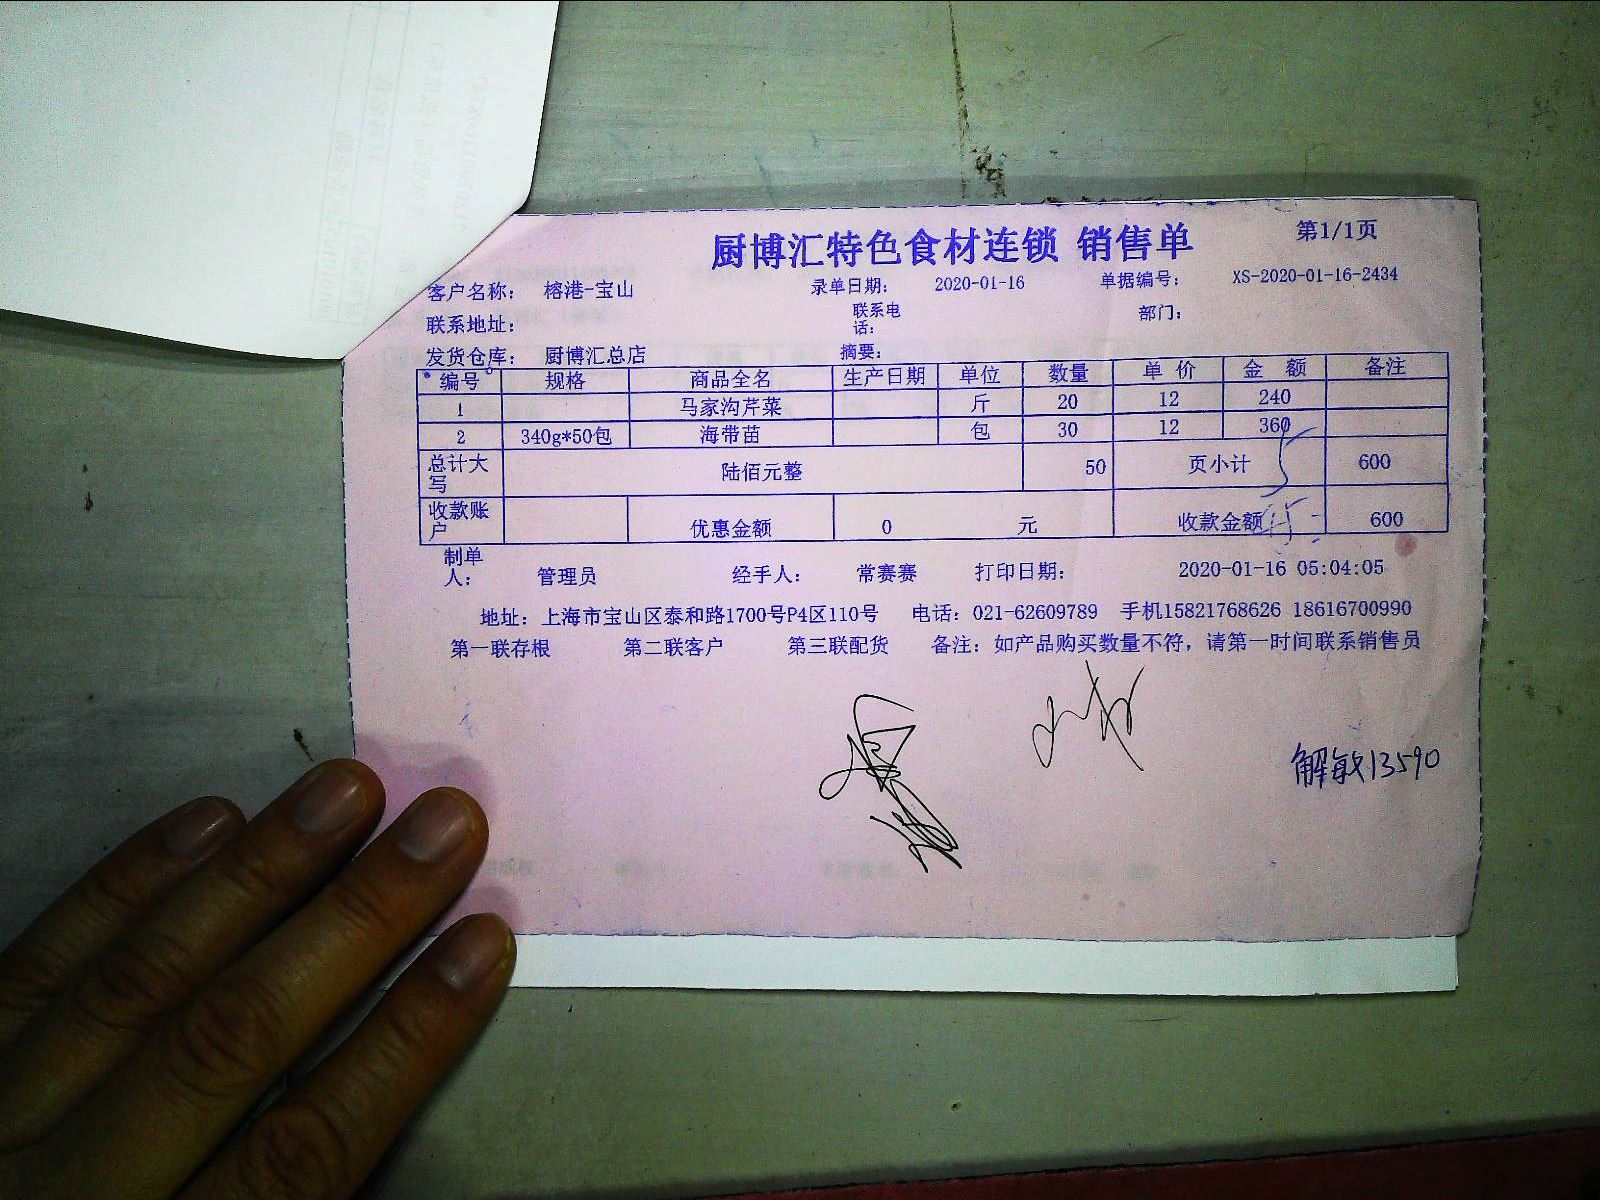 厨博汇特色食材连锁 销售单 第1/1页
客户名称： 榕港-宝山 录单日期： 2020-01-16 单据编号： XS-2020-01-16-2434
联系地址： 联系电话： 部门：
发货仓库： 厨博汇总店 摘要：
编号 规格 商品全名 生产日期 单位 数量 单 价 金 额 备注
1 马家沟芹菜 斤 20 12 240
2 340g*50包 海带苗 包 30 12 360
总计大写 陆佰元整 50 页小计 600
收款账户 优惠金额 0 元 收款金额 600
制单人： 管理员 经手人： 常赛赛 打印日期： 2020-01-16 05:04:05
地址：上海市宝山区泰和路1700号P4区110号 电话：021-62609789 手机15821768626 18616700990
第一联存根 第二联客户 第三联配货 备注：如产品购买数量不符，请第一时间联系销售员
解敏13590